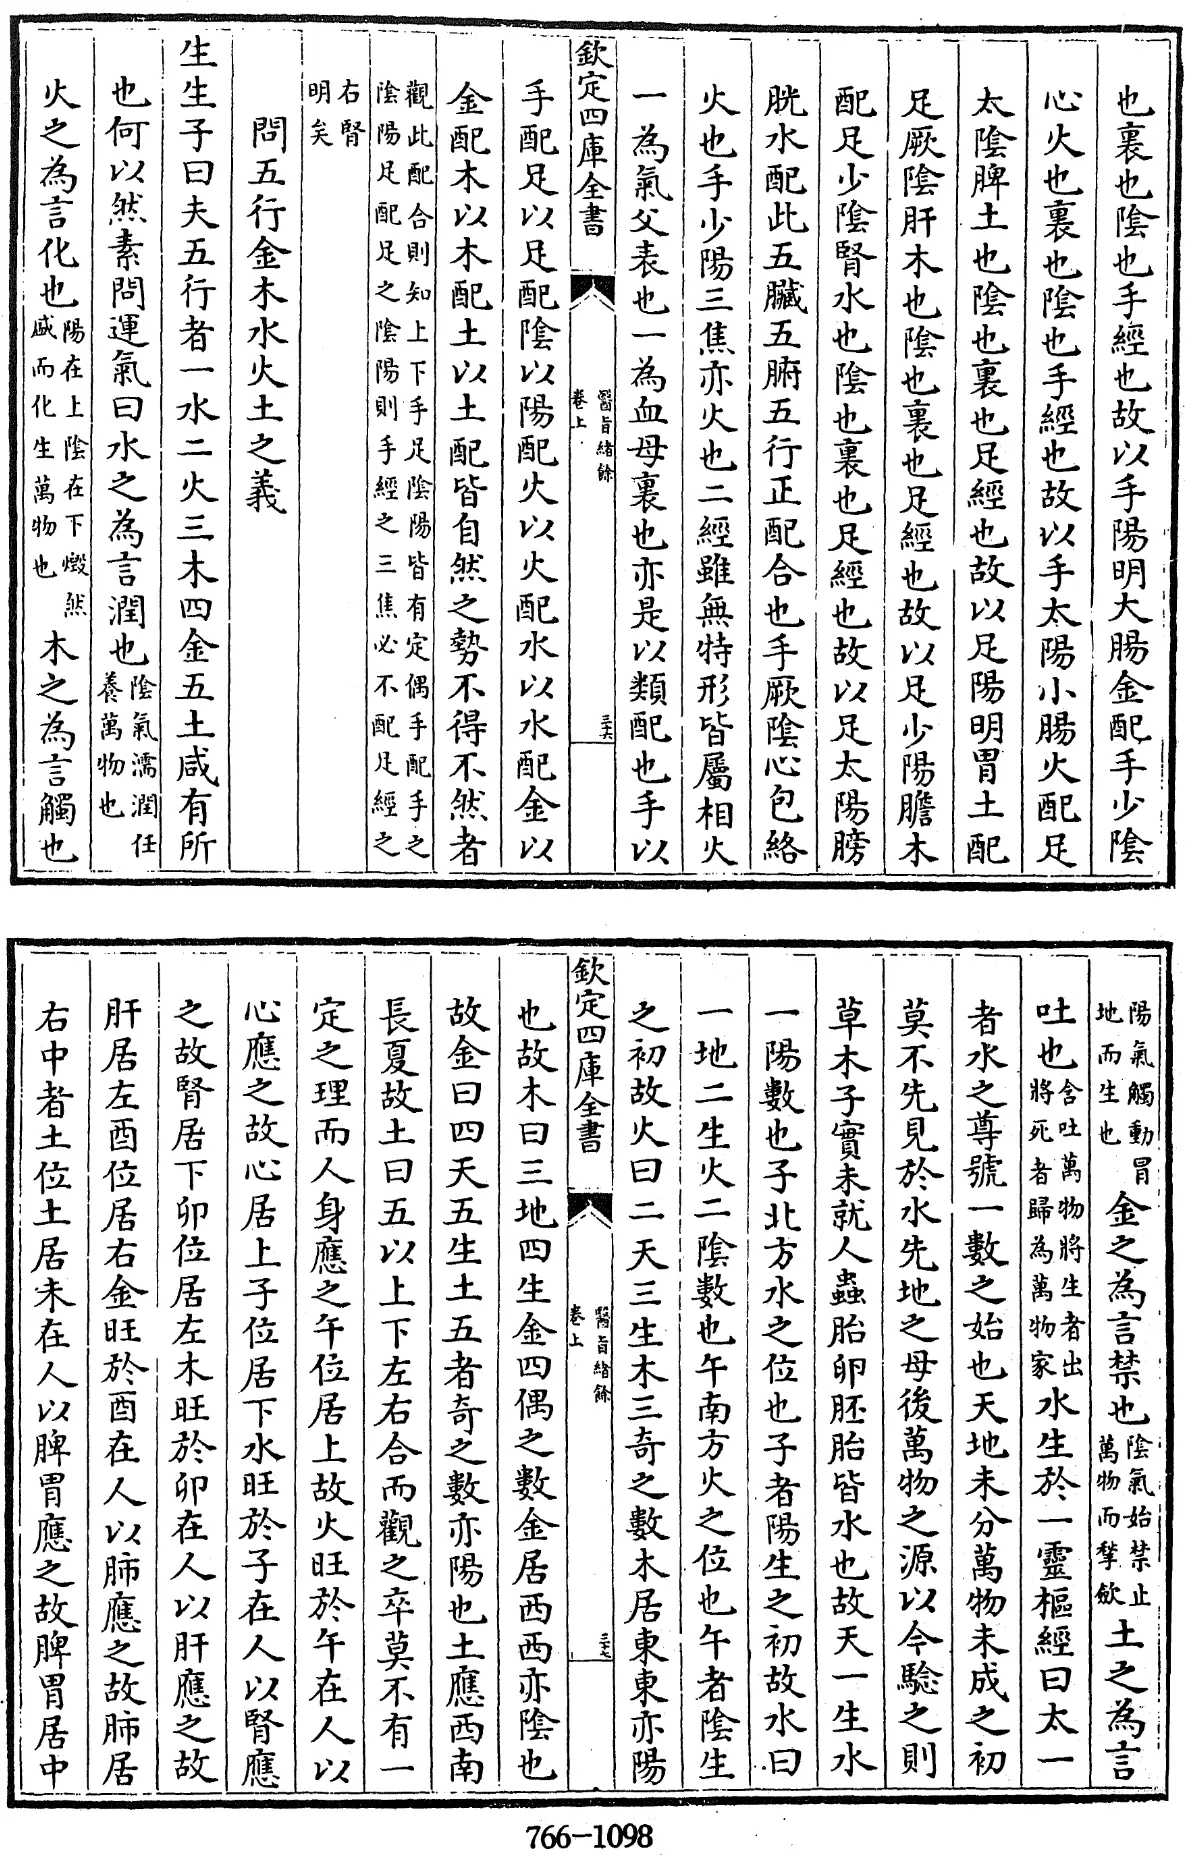 也裏也陰也手經也故以手陽明大腸金配手少陰
心火也裏也陰也手經也故以手太陽小腸火配足
太陰脾土也陰也裏也足經也故以足陽明胃土配
足厥陰肝木也陰也裏也足經也故以足少陽膽木
配足少陰腎水也陰也裏也足經也故以足太陽膀
胱水配此五臟五腑五行正配合也手厥陰心包絡
火也手少陽三焦亦火也二經雖無特形皆屬相火
一為氣父表也一為血母裏也亦是以類配也手以
欽定四庫全書
醫旨緒餘
卷上
三六
手配足以足配陰以陽配火以火配水以水配金以
金配木以木配土以土配皆自然之勢不得不然者
觀此配合則知上下手足陰陽皆有定偶手配手之
陰陽足配足之陰陽則手經之三焦必不配足經之
右腎
明矣
問五行金木水火土之義
生生子曰夫五行者一水二火三木四金五土咸有所
也何以然素問運氣曰水之為言潤也陰氣濡潤任
養萬物也
火之為言化也陽在上陰在下燬然
盛而化生萬物也
木之為言觸也
陽氣觸動冒
地而生也
金之為言禁也陰氣始禁止
萬物而揫斂
土之為言
吐也含吐萬物將生者出
將死者歸為萬物家
水生於一靈樞經曰太一
者水之尊號一數之始也天地未分萬物未成之初
莫不先見於水先地之母後萬物之源以今驗之則
草木子實未就人蟲胎卵胚胎皆水也故天一生水
一陽數也子北方水之位也子者陽生之初故水曰
一地二生火二陰數也午南方火之位也午者陰生
之初故火曰二天三生木三奇之數木居東東亦陽
欽定四庫全書
醫旨緒餘
卷上
三七
也故木曰三地四生金四偶之數金居西西亦陰也
故金曰四天五生土五者奇之數亦陽也土應西南
長夏故土曰五以上下左右合而觀之卒莫不有一
定之理而人身應之午位居上故火旺於午在人以
心應之故心居上子位居下水旺於子在人以腎應
之故腎居下卯位居左木旺於卯在人以肝應之故
肝居左酉位居右金旺於酉在人以肺應之故肺居
右中者土位土居未在人以脾胃應之故脾胃居中
766-1098